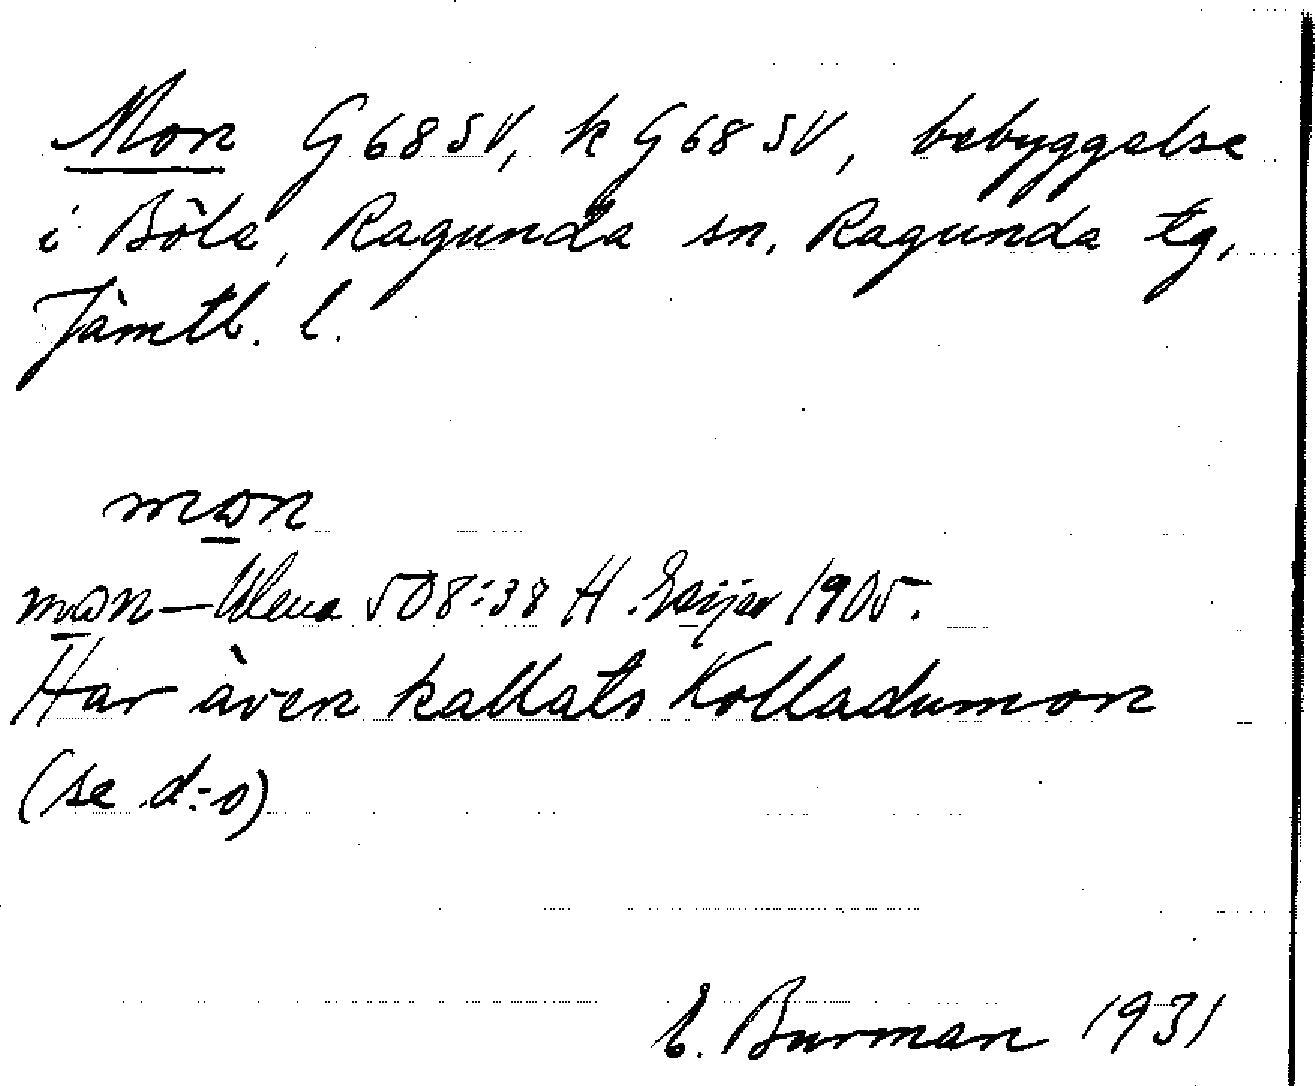 Mon G 68 SV, k G 68 SV, bebyggelse
i Böle, Ragunda sn, Ragunda tg,
Jämtl. l.
mɷn
mɷn — 508:38 H. Geijer 1905.
Har även kallats Kolladumon
(se d:o)
E. Burman 1931